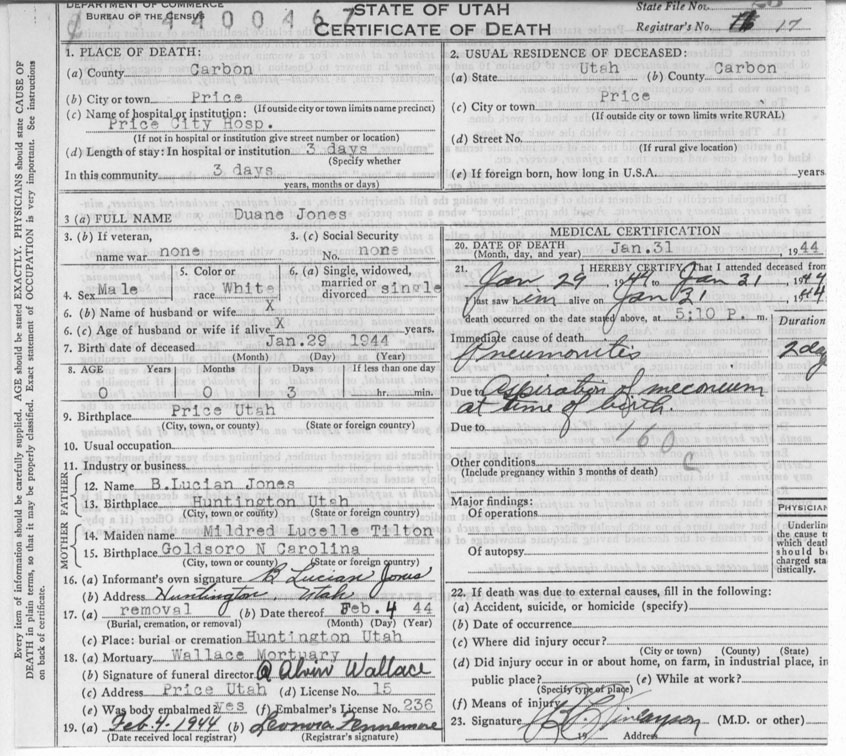 DEPARTMENT OF COMMERCE
BUREAU OF THE CENSUS
4400467
STATE OF UTAH
CERTIFICATE OF DEATH
State File No.
Registrar's No. 17
Every item of information should be carefully supplied. AGE should be stated EXACTLY. PHYSICIANS should state CAUSE OF
DEATH in plain terms, so that it may be properly classified. Exact statement of OCCUPATION is very important. See instructions
on back of certificate.
1. PLACE OF DEATH:
(a) County Carbon
(b) City or town Price
(If outside city or town limits name precinct)
(c) Name of hospital or institution:
Price City Hosp.
(If not in hospital or institution give street number or location)
(d) Length of stay: In hospital or institution 3 days
(Specify whether
In this community 3 days
years, months or days)
2. USUAL RESIDENCE OF DECEASED:
(a) State Utah (b) County Carbon
(c) City or town Price
(If outside city or town limits write RURAL)
(d) Street No.
(If rural give location)
(e) If foreign born, how long in U.S.A. years
3 (a) FULL NAME Duane Jones
3. (b) If veteran,
name war none
3. (c) Social Security
No. none
4. Sex Male
5. Color or
race White
6. (a) Single, widowed,
married or
divorced single
6. (b) Name of husband or wife X
6. (c) Age of husband or wife if alive X years.
7. Birth date of deceased Jan.29 1944
(Month) (Day) (Year)
8. AGE Years Months Days If less than one day
0 0 3 hr. min.
9. Birthplace Price Utah
(City, town, or county) (State or foreign country)
10. Usual occupation
11. Industry or business
FATHER
12. Name B.Lucian Jones
13. Birthplace Huntington Utah
(City, town or county) (State or foreign country)
MOTHER
14. Maiden name Mildred Lucelle Tilton
15. Birthplace Goldsoro N Carolina
(City, town or county) (State or foreign country)
16. (a) Informant's own signature B Lucian Jones
(b) Address Huntington, Utah
17. (a) removal (b) Date thereof Feb. 4 44
(Burial, cremation, or removal) (Month) (Day) (Year)
(c) Place: burial or cremation Huntington Utah
18. (a) Mortuary Wallace Mortuary
(b) Signature of funeral director Alvin Wallace
(c) Address Price Utah (d) License No. 15
(e) Was body embalmed? yes (f) Embalmer's License No. 236
19. (a) Feb. 4-1944 (b) Leonora Fennemore
(Date received local registrar) (Registrar's signature)
MEDICAL CERTIFICATION
20. DATE OF DEATH Jan.31 1944
(Month, day, and year)
21. I HEREBY CERTIFY That I attended deceased from
Jan 29 1944 to Jan 31 1944
I last saw him alive on Jan 31 1944
death occurred on the date stated above, at 5:10 P. m.
Immediate cause of death Duration
Pneumonitis 2 day
Due to aspiration of meconium
at time of birth.
Due to
160 c
Other conditions
(Include pregnancy within 3 months of death)
Major findings:
Of operations
Of autopsy
PHYSICIAN
Underline
the cause to
which death
should be
charged sta
tistically.
22. If death was due to external causes, fill in the following:
(a) Accident, suicide, or homicide (specify)
(b) Date of occurrence
(c) Where did injury occur?
(City or town) (County) (State)
(d) Did injury occur in or about home, on farm, in industrial place, in
public place? (e) While at work?
(Specify type of place)
(f) Means of injury
23. Signature (M.D. or other)
19 Address